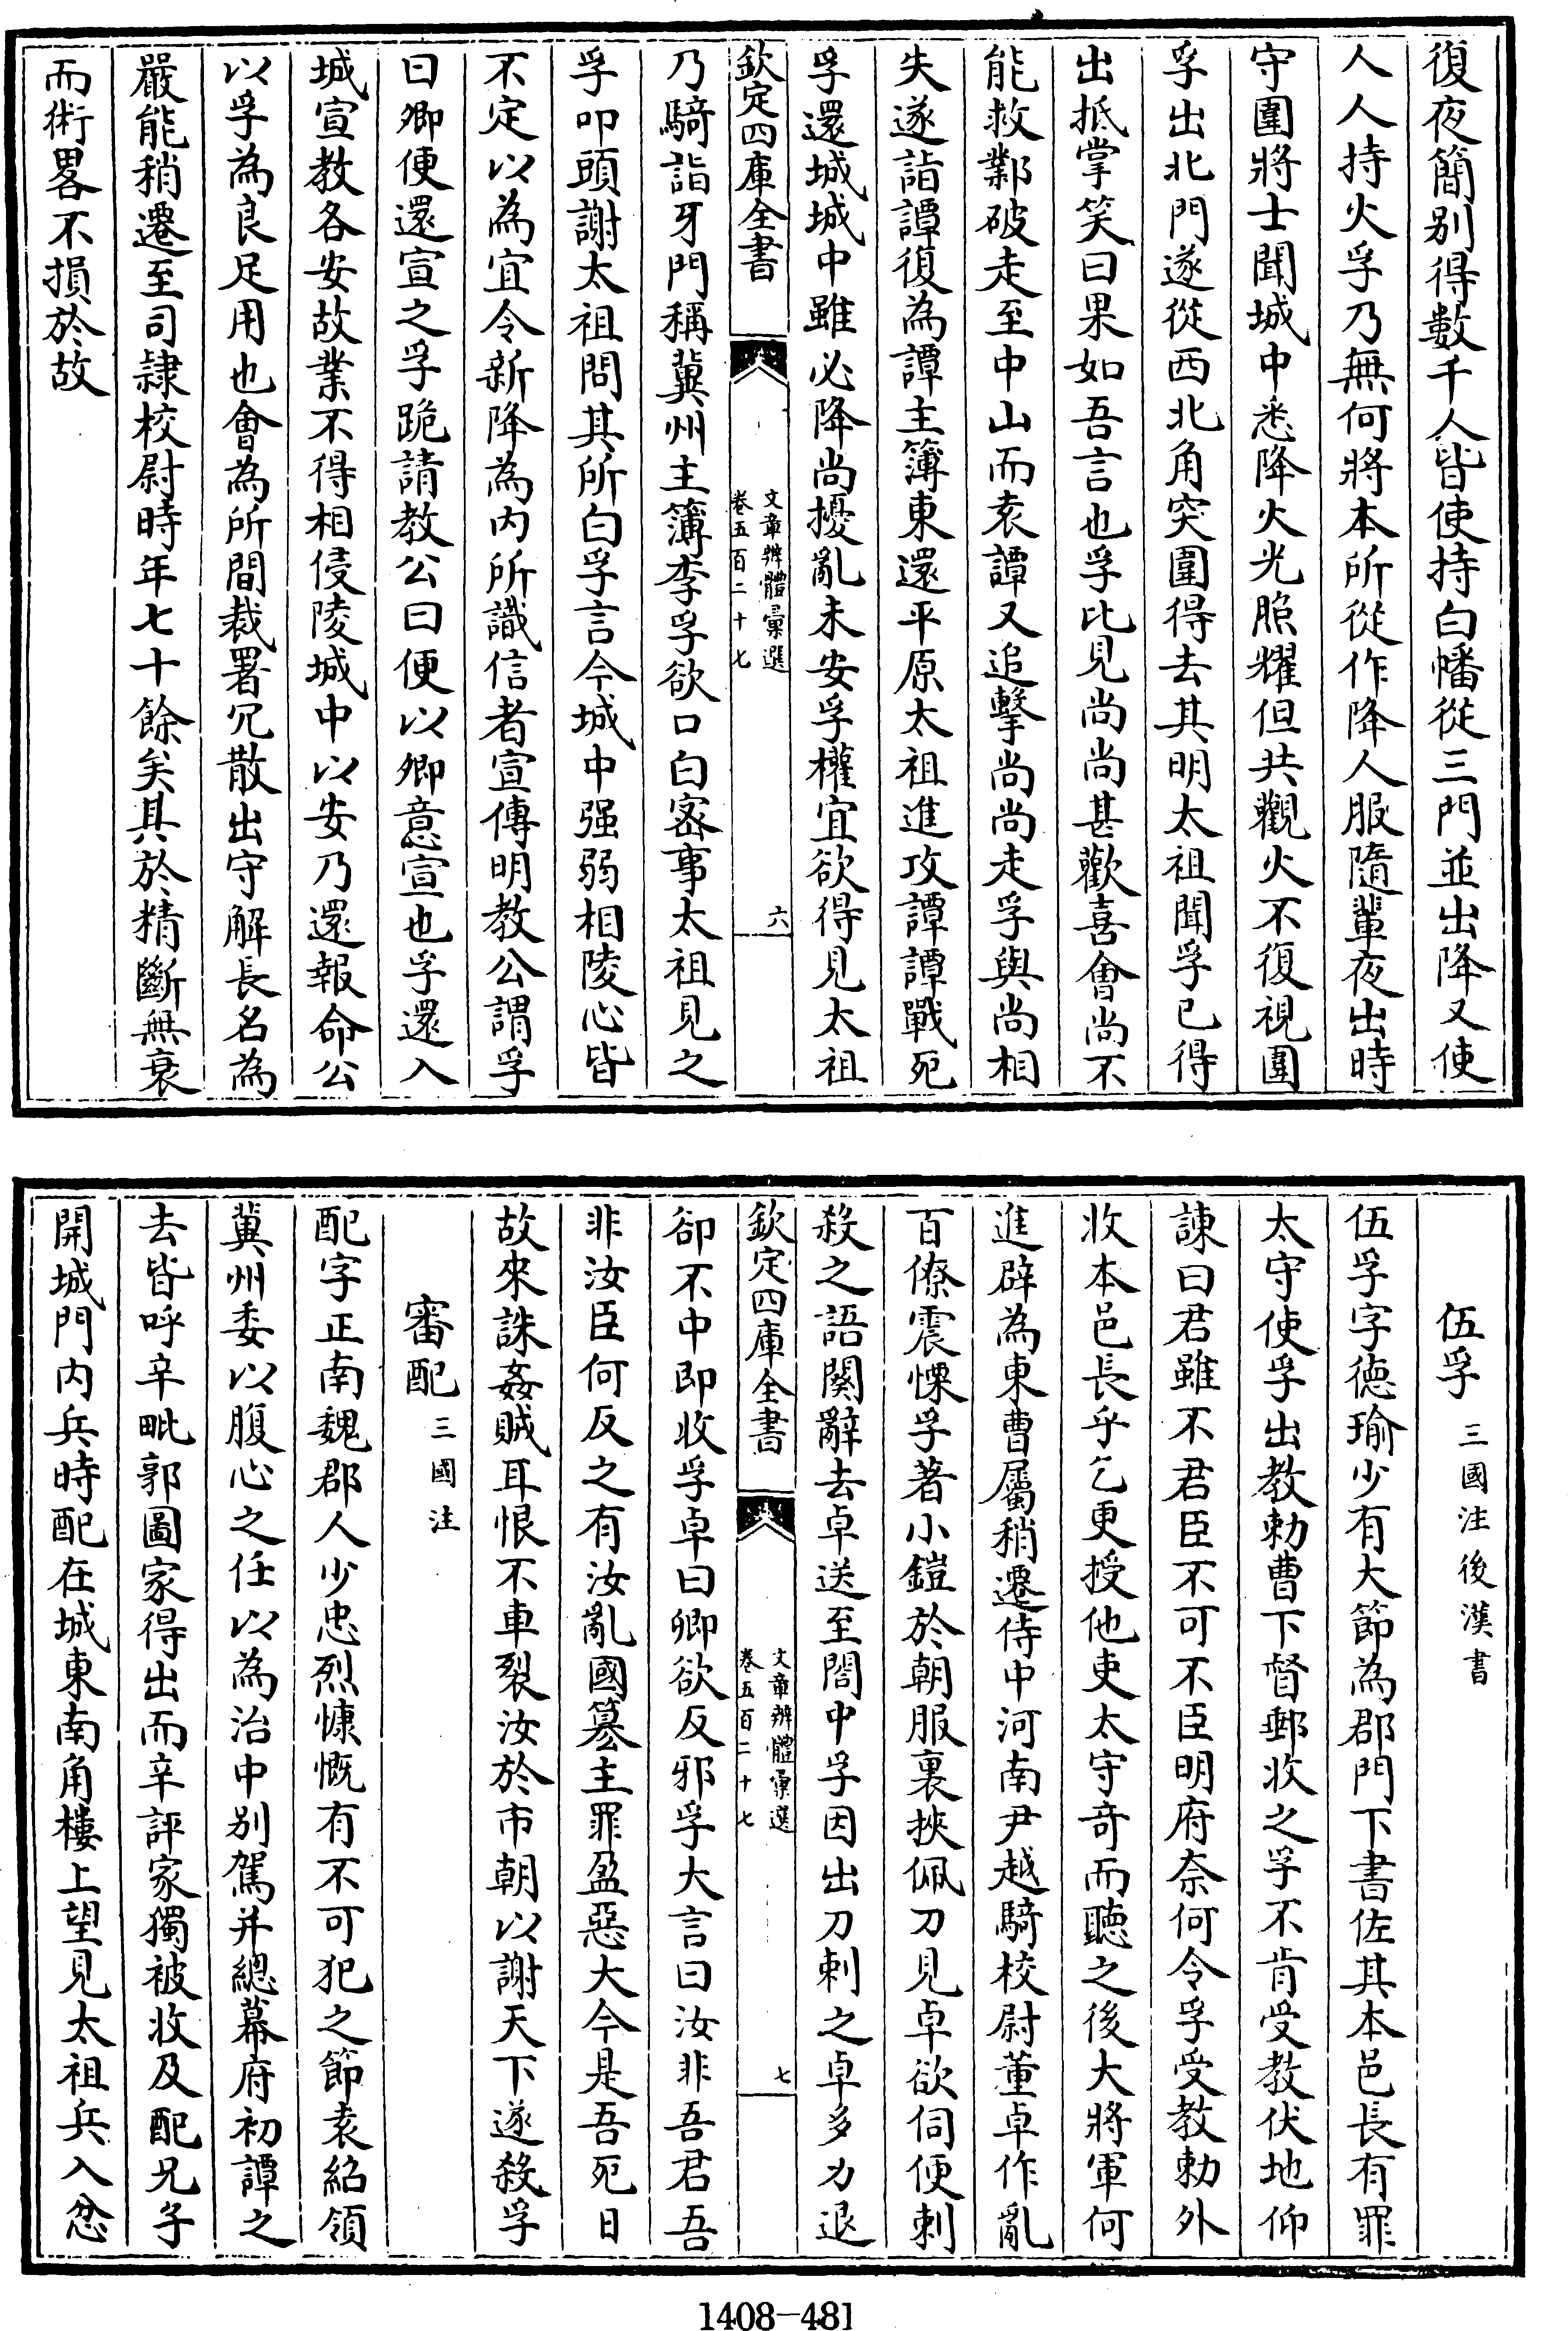 復夜簡别得數千人皆使持白幡從三門並出降又使
人人持火孚乃無何將本所從作降人服隨輩夜出時
守圍將士聞城中悉降火光照耀但共觀火不復視圍
孚出北門遂從西北角突圍得去其明太祖聞孚已得
出抵掌笑曰果如吾言也孚比見尚尚甚歡喜會尚不
能救鄴破走至中山而袁譚又追擊尚尚走孚與尚相
失遂詣譚復為譚主簿東還平原太祖進攻譚譚戰死
孚還城城中雖必降尚擾亂未安孚權宜欲得見太祖
欽定四庫全書
文章辨體彙選
卷五百二十七
六
乃騎詣牙門稱冀州主簿李孚欲口白密事太祖見之
孚叩頭謝太祖問其所白孚言今城中强弱相陵心皆
不定以為宜令新降為内所識信者宣傳明教公謂孚
曰卿便還宣之孚跪請教公曰便以卿意宣也孚還入
城宣教各安故業不得相侵陵城中以安乃還報命公
以孚為良足用也會為所間裁署冗散出守解長名為
嚴能稍遷至司隷校尉時年七十餘矣其於精斷無衰
而術畧不損於故
伍孚 三國注 後漢書
伍孚字德瑜少有大節為郡門下書佐其本邑長有罪
太守使孚出教勅曹下督郵收之孚不肯受教伏地仰
諫曰君雖不君臣不可不臣明府奈何令孚受教勅外
收本邑長乎乞更授他吏太守奇而聽之後大將軍何
進辟為東曹屬稍遷侍中河南尹越騎校尉董卓作亂
百僚震慄孚著小鎧於朝服裏挾佩刀見卓欲伺便刺
殺之語闋辭去卓送至閤中孚因出刀刺之卓多力退
欽定四庫全書
文章辨體彙選
卷五百二十七
七
卻不中即收孚卓曰卿欲反邪孚大言曰汝非吾君吾
非汝臣何反之有汝亂國簒主罪盈惡大今是吾死日
故來誅姦賊耳恨不車裂汝於市朝以謝天下遂殺孚
審配 三國注
配字正南魏郡人少忠烈慷慨有不可犯之節袁紹領
冀州委以腹心之任以為治中别駕并總幕府初譚之
去皆呼辛毗郭圖家得出而辛評家獨被收及配兄子
開城門内兵時配在城東南角樓上望見太祖兵入忿
1408-481